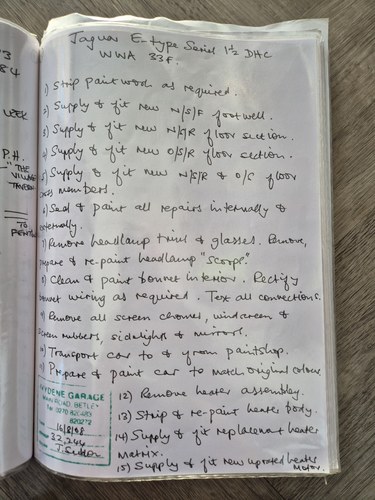 Jaguar E-type Series 1½ DHC
WWA 33F.
1) Strip paintwork as required.
2) Supply & fit new N/S/F footwell.
3) Supply & fit new N/S/R floor section.
4) Supply & fit new O/S/R floor section.
5) Supply & fit new N/S/R & O/C floor
cross members.
6) Seal & paint all repairs internally &
externally.
7) Remove headlamp trims & glasses. Remove,
prepare & re-paint headlamp "scoops".
8) Clean & paint bonnet interior. Rectify
bonnet wiring as required. Test all connections.
9) Remove all screen chromes, windscreen &
screen rubbers, sidelights & mirrors.
10) Transport car to & from paintshop.
11) Prepare & paint car to match original colour.
12) Remove heater assembley.
13) Strip & re-paint heater body.
14) Supply & fit replacement heater
matrix.
15) Supply & fit new uprated heater
motor.
DENE GARAGE
ROAD,
16/8/98
32,244
84
WEEK
P.H.
"THE
VILLAGE
TAVERN
TO